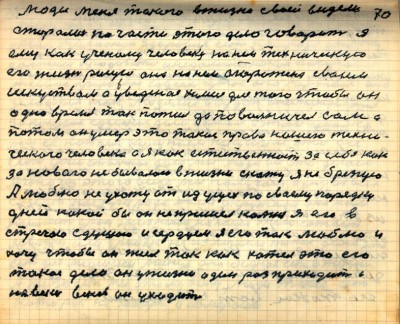 70
Люди меня такого в жизни своей видели
старались по части этого дела говорить я
ему как ученому человеку на нем техническую
его жизнь рисую она на нем сторожева своем
искуством а уведеная химея для того чтобы он
одно время так попил да повалыичел сам а
потом он умер это такое право нашего техни-
ческого человека а я как естественност за себя как
за новаго не бывалаго в жизни скажу я не брезгую
А люблю не ухожу от идущех по своему порядку
дней какой бы он не пришел ко мне Я его в
стречаю с душою и сердцем я его так люблю и
хочу чтобы он жил так как хотел это его
такое дело он в жизни один раз приходит а
на веки веков он уходит